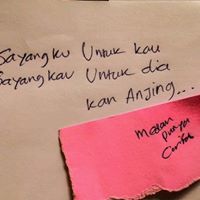 Sayangku Untuk kau
Sayangkau Untuk dia
kan Anjing...
Medan
punya
Cerita